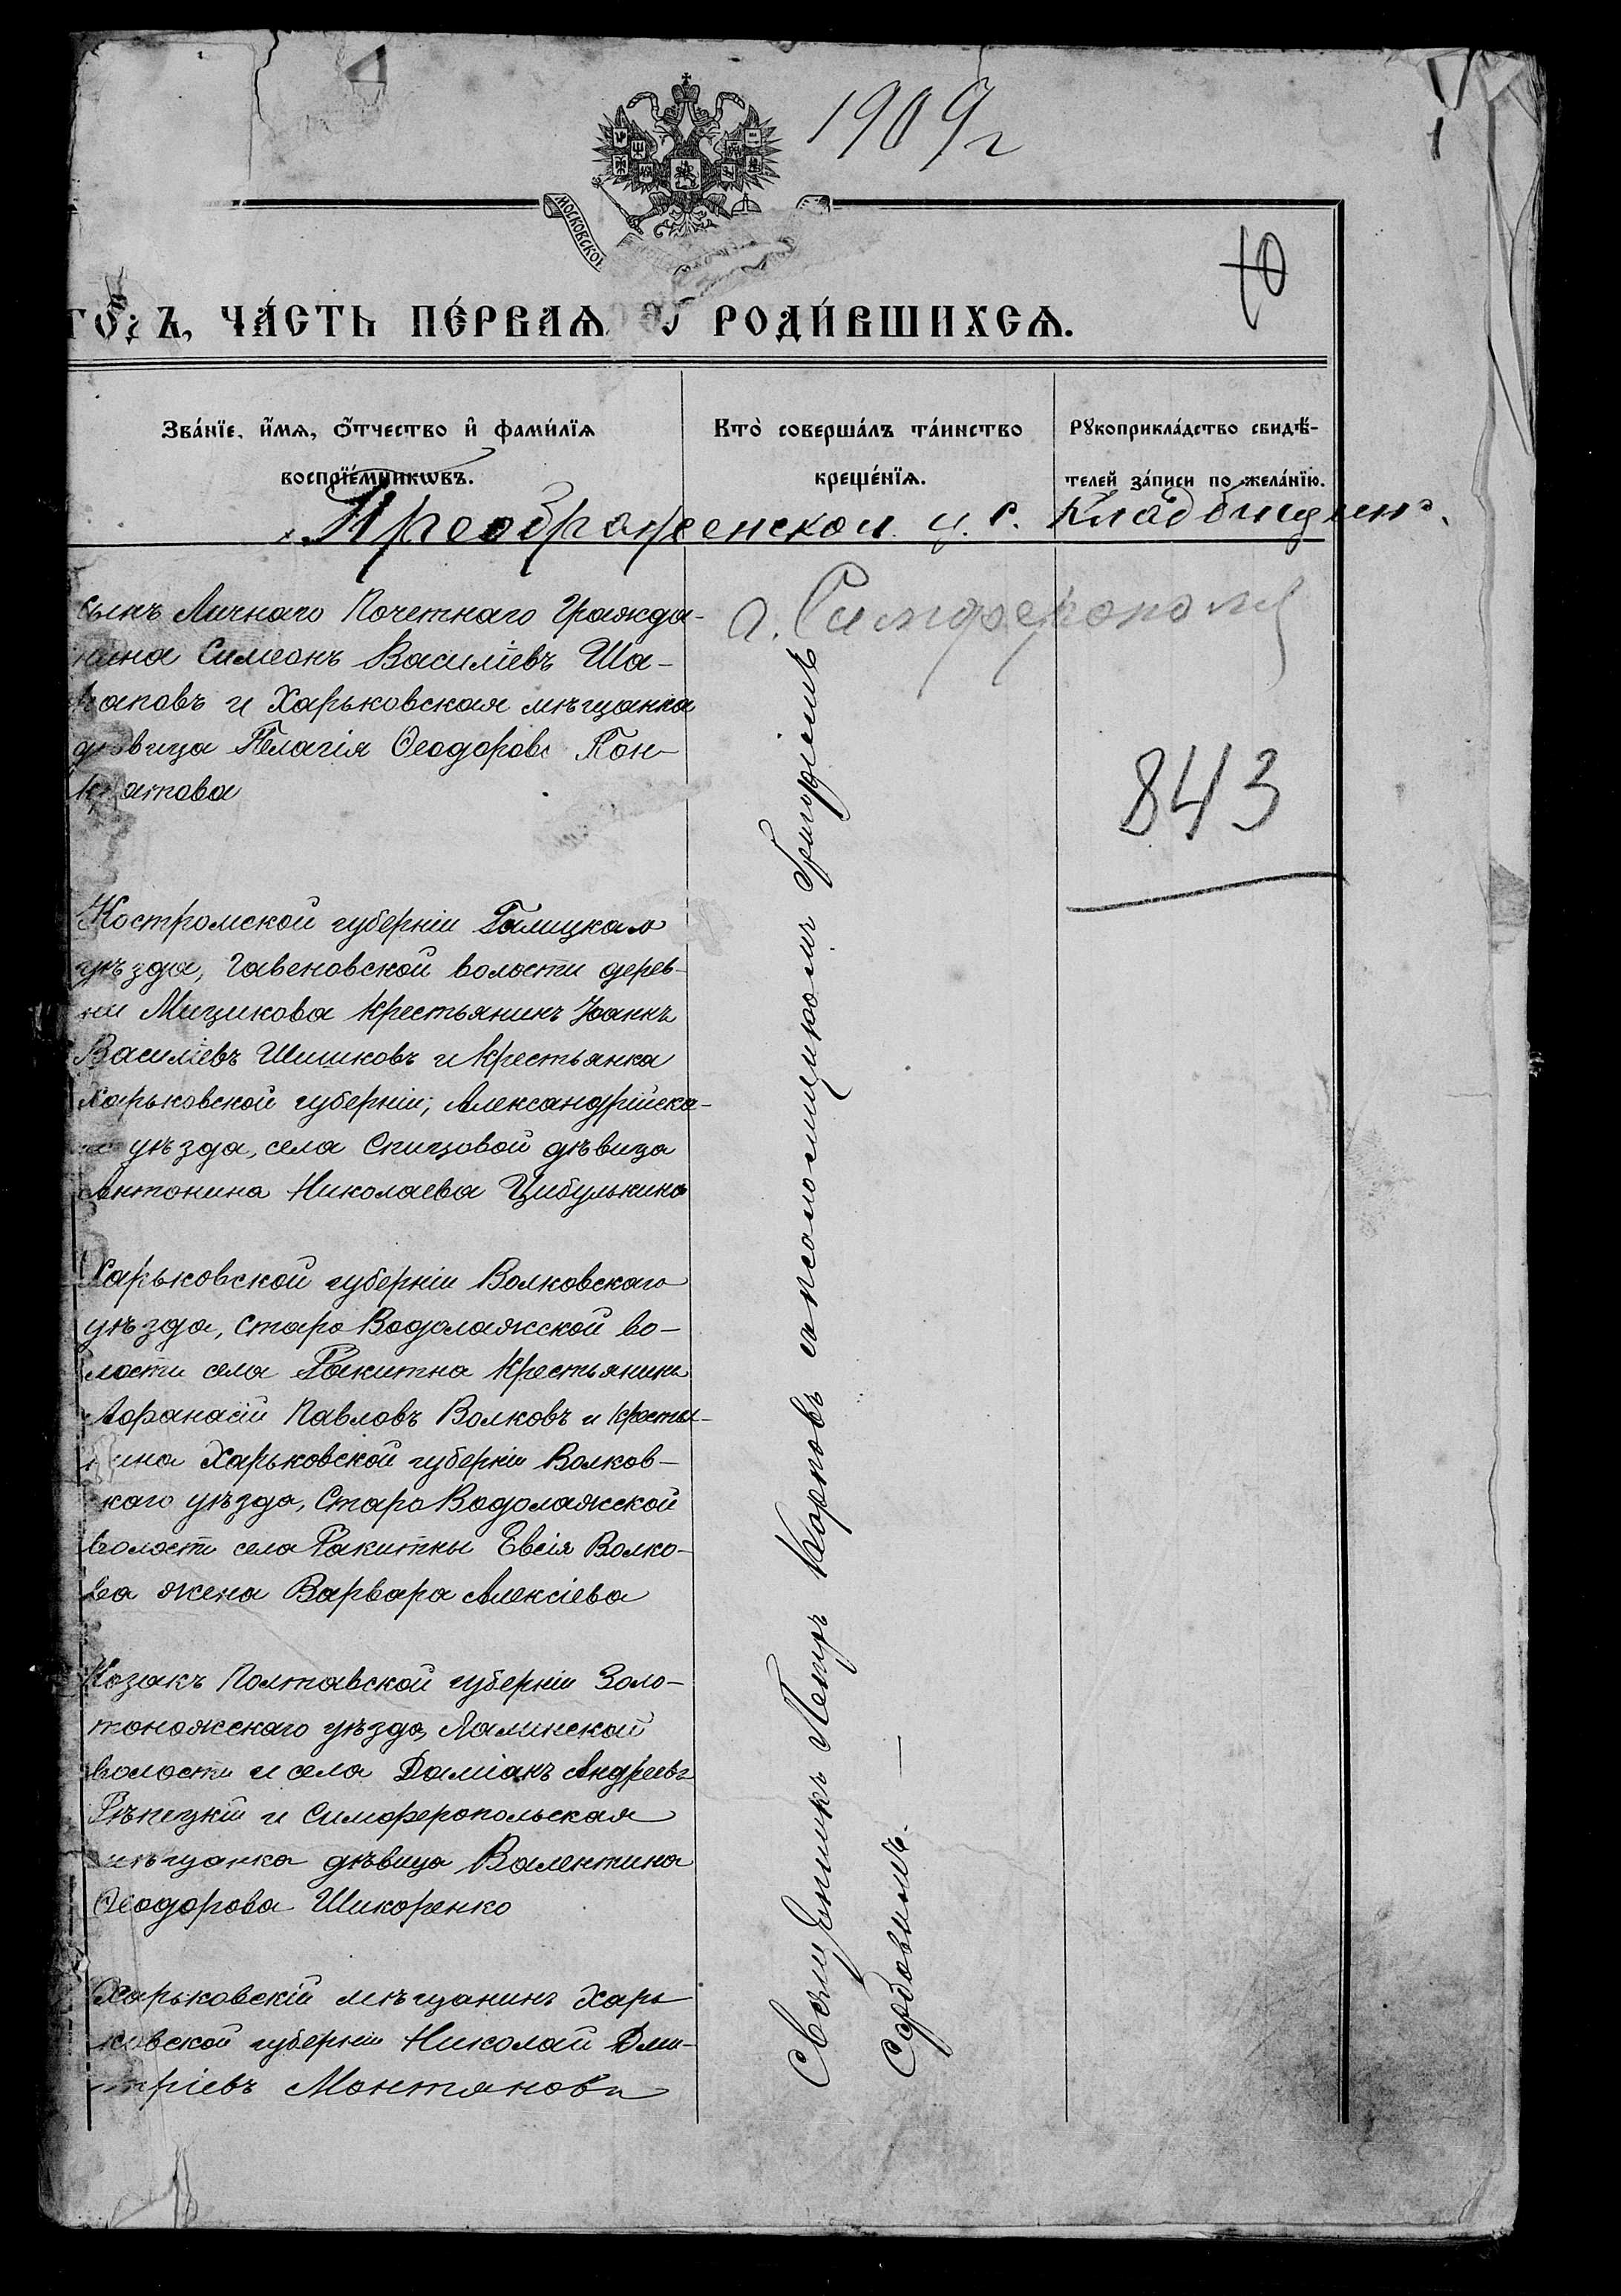 1909 г
1
МОСКОВСКОЙ
10
ЧА́СТЬ ПЕ́РВАЯ РОДИ́ВШИХСЯ.
Зва́нїе, и҆́мѧ, ѻ҆́тчество и҆ фами́лїѧ
воспрїе́мникѡвъ.
Кто̀ соверша́лъ та́инство
креще́нїѧ.
Рꙋкоприкла́дство свидѣ́-
телей за́писи по жела́нїю.
Преображенской ц. с. Кладбищен
г. Симферополя
сынъ Личнаго Почетнаго Гражда-
нина Симеонъ Василіевъ Ша-
паповъ и Харьковская мѣщанка
дѣвица Пелагія Ѳеодоров Пон-
кратова
843
Костромской губерніи Галицкаго
уѣзда, Гавеновской волости дерев-
ни Мицикова крестьянинъ Іоаннъ
Василіевъ Шишковъ и крестьянка
Харьковской губерніи, Александрійска-
го уѣзда, села Спицовой дѣвица
Антонина Николаева Цибулькина
Харьковской губерніи Волковскаго
уѣзда, Старо Водолажской во-
лости села Ракитна крестьянинъ
Афанасій Павловъ Волковъ и крестья-
нина Харьковской губерніи Волков-
скаго уѣзда, Старо Водолажской
волости села Ракитны Евсія Волко-
ва жена Варвара Алексіева
Козакъ Полтавской губерніи Золо-
тоножскаго уѣзда, Лялинской
волости и села Даміанъ Андреевъ
Рѣпецкій и Симферопольская
мѣщанка дѣвица Валентина
Ѳеодорова Шикоренко
Харьковскій мѣщанинъ Харь
ковской губерніи Николай Дми-
тріевъ Монтянова
Священникъ Петръ Карповъ съ псаломщикомъ Григоріемъ
Судовымъ.